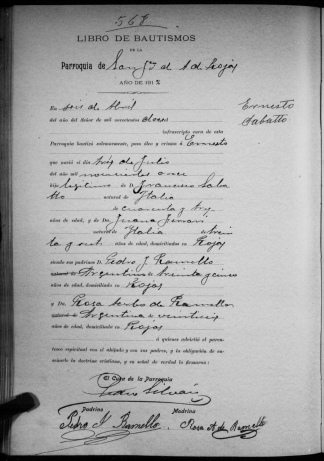 568
LIBRO DE BAUTISMOS
DE LA
Parroquia de San Fco de A de Rojas
AÑO DE 1912
En seis de Abril
Ernesto
Sabatto
del año del Señor de mil novecientos doce
infrascripto cura de esta
Parroquia bautizó solemnemente, puso óleo y crisma á Ernesto
que nació el día de Julio
del año mil novecientos once
hijo legítimo de D. Francisco Saba
tto natural de Italia
de cuarenta y tres
años de edad, y de Da. Juana Ferrari
natural de Italia de trein
ta y años de edad, domiciliados en Rojas
siendo sus padrinos D. Pedro J. Ramello
Argentino de treinta y cinco
años de edad, domiciliado en Rojas
y Da. Rosa de Ramello
Argentina de
años de edad, domiciliado en Rojas
á quienes advertí el parentesco
espiritual con el ahijado y con sus padres, y la obligación de
enseñarle la doctrina cristiana, y en señal de verdad lo firmaron:
El Cura de la Parroquia
Pedro Silván
Padrino
Madrina
Pedro J Ramello
Rosa A de Ramello